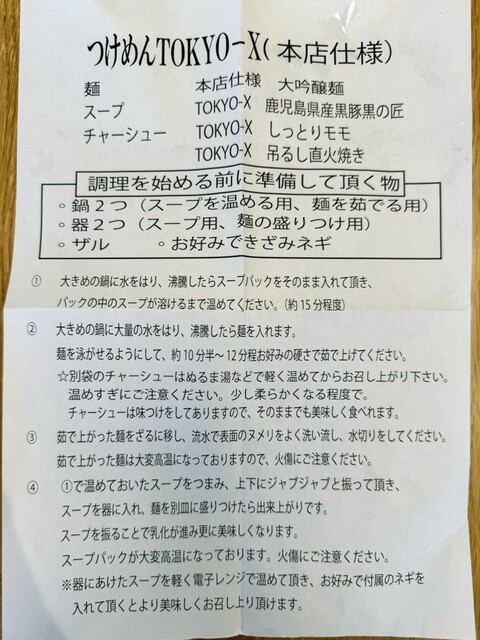 つけめんTOKYO－X(本店仕様)
麺 本店仕様 大吟醸麺
スープ TOKYO-X 鹿児島県産黒豚黒の匠
チャーシュー TOKYO-X しっとりモモ
TOKYO-X 吊るし直火焼き
調理を始める前に準備して頂く物
◦鍋２つ（スープを温める用、麺を茹でる用）
◦器２つ（スープ用、麺の盛りつけ用）
◦ザル ◦お好みできざみネギ
① 大きめの鍋に水をはり、沸騰したらスープパックをそのまま入れて頂き、
パックの中のスープが溶けるまで温めてください。（約15分程度）
② 大きめの鍋に大量の水をはり、沸騰したら麺を入れます。
麺を泳がせるようにして、約10分半～12分程お好みの硬さで茹で上げてください。
☆別袋のチャーシューはぬるま湯などで軽く温めてからお召し上がり下さい。
温めすぎにご注意ください。少し柔らかくなる程度で。
チャーシューは味つけをしてありますので、そのままでも美味しく食べれます。
③ 茹で上がった麺をざるに移し、流水で表面のヌメリをよく洗い流し、水切りをしてください。
茹で上がった麺は大変高温になっておりますので、火傷にご注意ください。
④ ①で温めておいたスープをつまみ、上下にジャブジャブと振って頂き、
スープを器に入れ、麺を別皿に盛りつけたら出来上がりです。
スープを振ることで乳化が進み更に美味しくなります。
スープパックが大変高温になっております。火傷にご注意ください。
※器にあけたスープを軽く電子レンジで温めて頂き、お好みで付属のネギを
入れて頂くとより美味しくお召し上り頂けます。